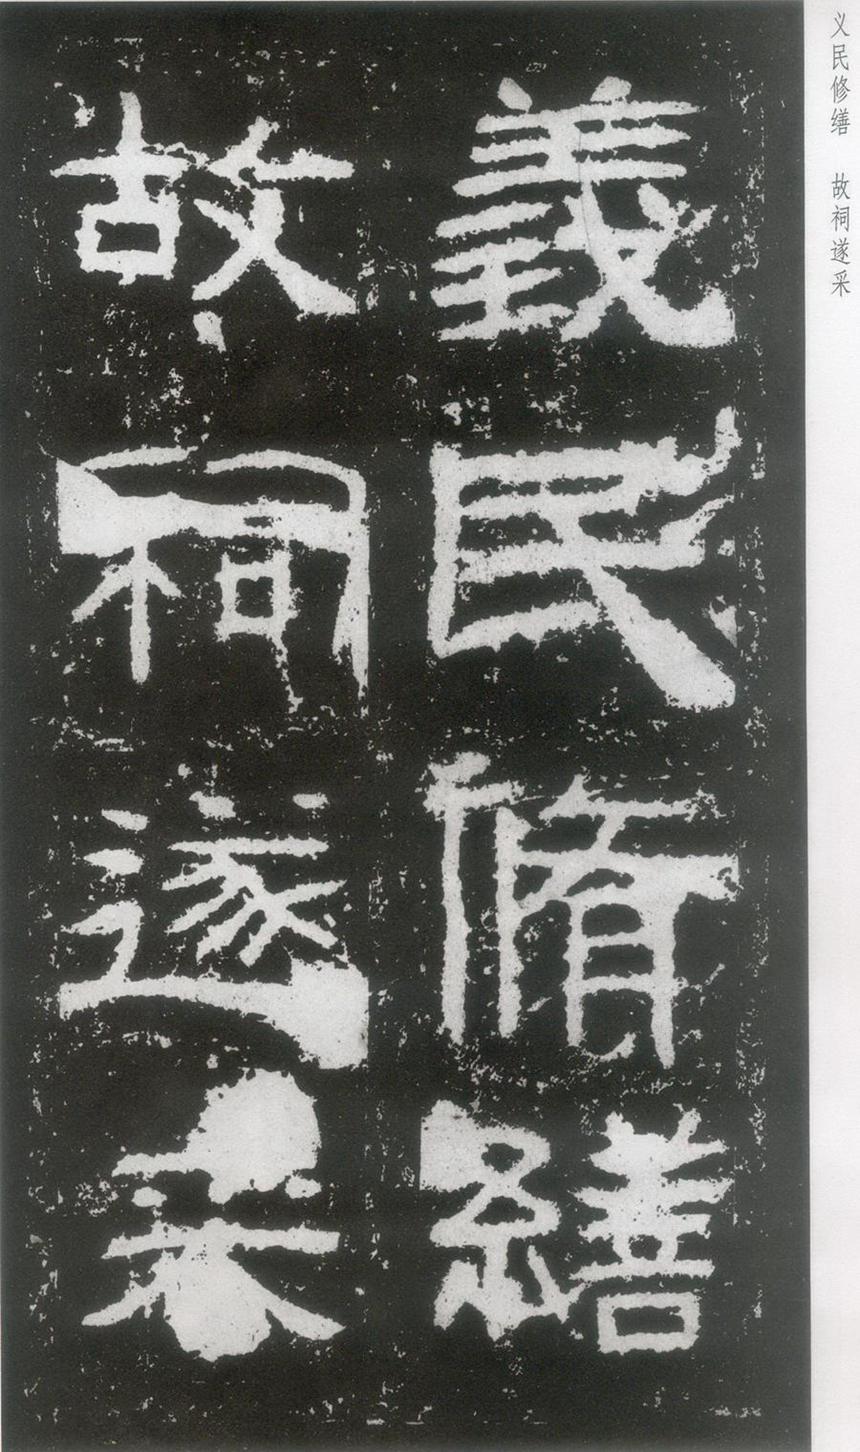 义民修缮 故祠遂采
義民脩繕
故祠遂采